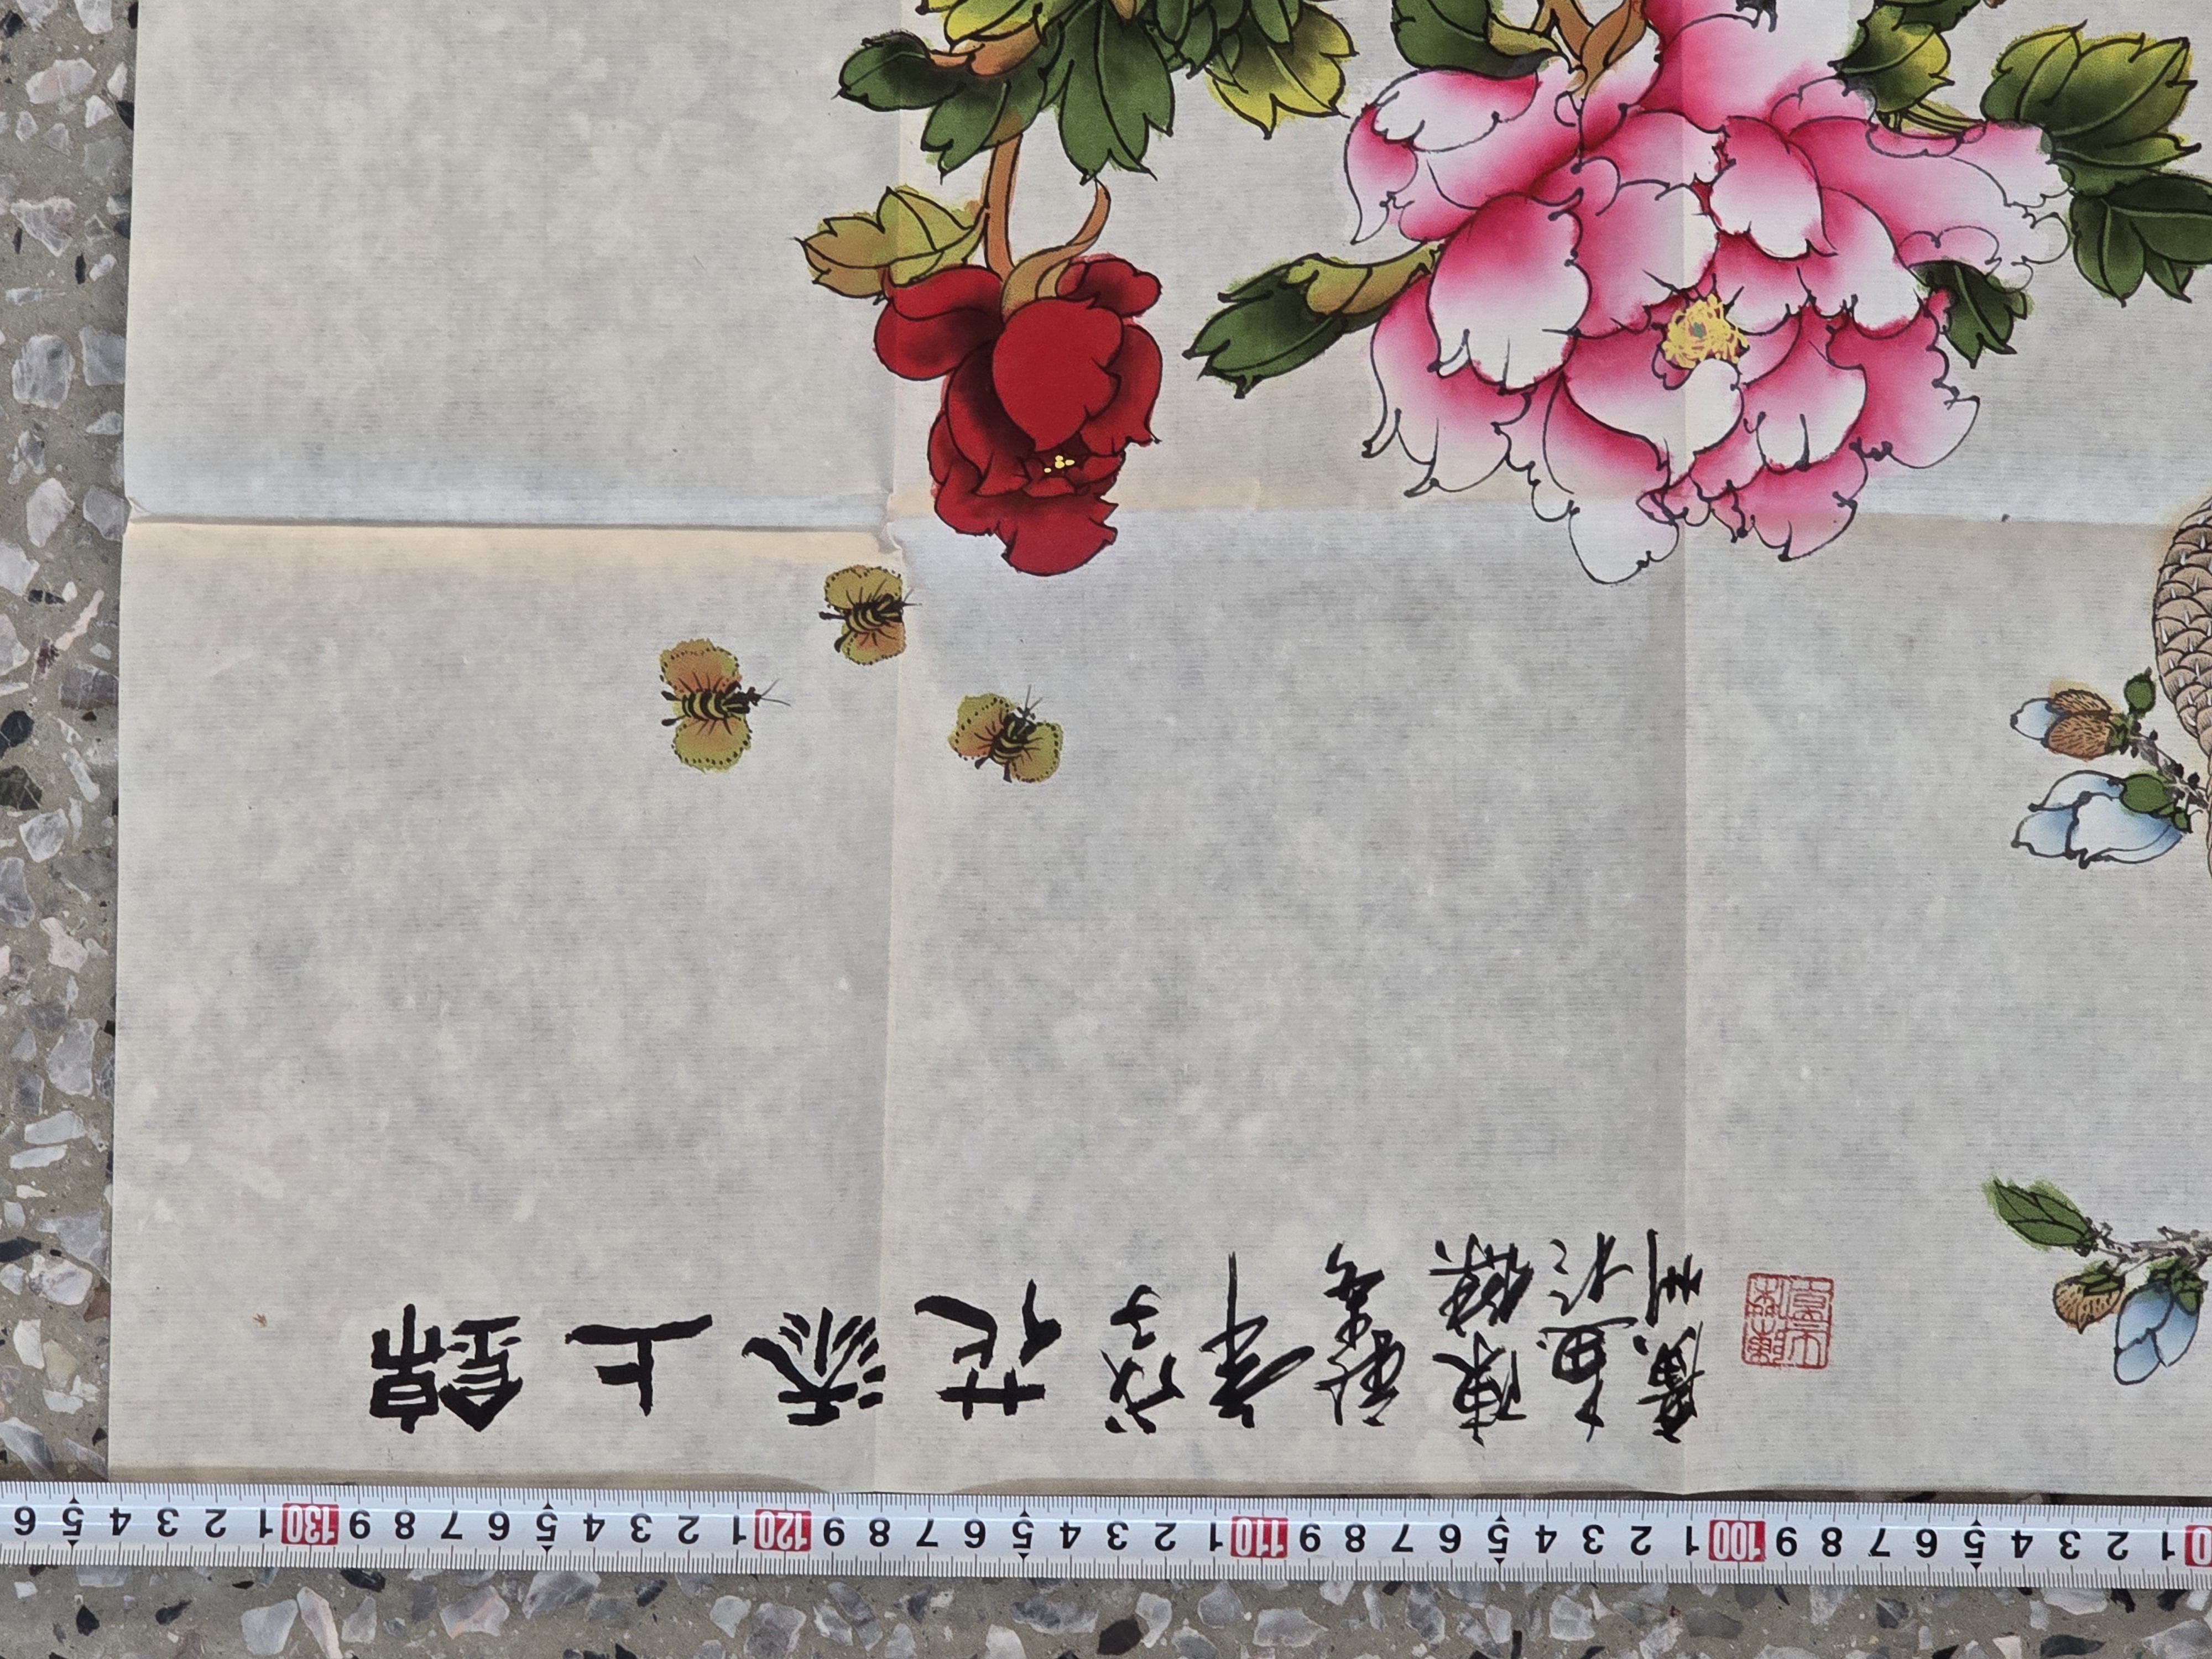 錦上添花
戊子
年
陳
畫於
廣州
1 2 3 4 5 6 7 8 9 100 1 2 3 4 5 6 7 8 9 110 1 2 3 4 5 6 7 8 9 120 1 2 3 4 5 6 7 8 9 130 1 2 3 4 5 6